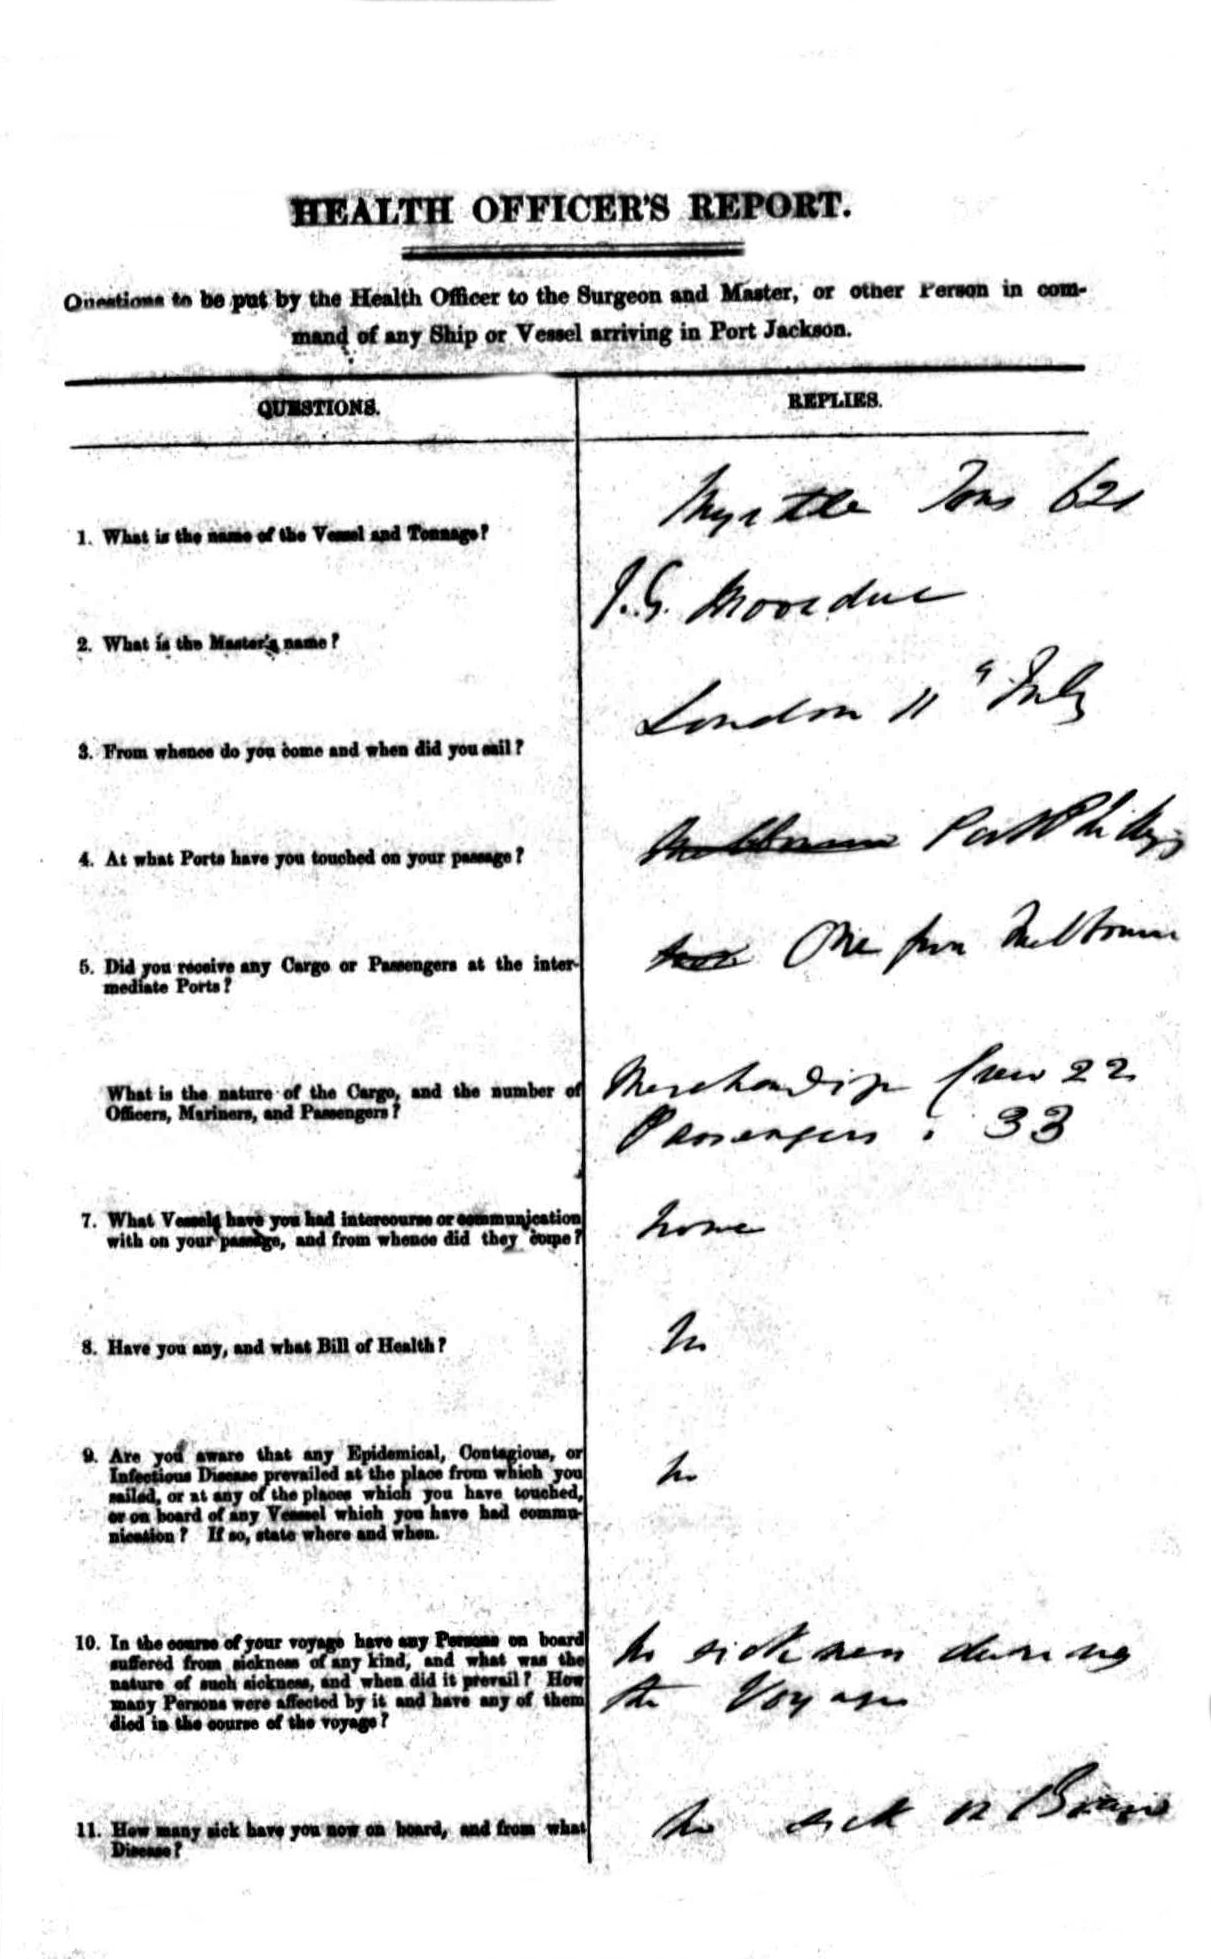 HEALTH OFFICER'S REPORT.
Questions to be put by the Health Officer to the Surgeon and Master, or other Person in com-
mand of any Ship or Vessel arriving in Port Jackson.
QUESTIONS.
REPLIES.
1. What is the name of the Vessel and Tonnage?
Myrtle Tons 621
2. What is the Master's name?
J.G.
3. From whence do you come and when did you sail?
London 11 July
4. At what Ports have you touched on your passage?
Melbourne Port Phillip
5. Did you receive any Cargo or Passengers at the inter-
mediate Ports?
One from Melbourne
What is the nature of the Cargo, and the number of
Officers, Mariners, and Passengers?
Merchandize Crew 22
Passengers : 33
7. What Vessels have you had intercourse or communication
with on your passage, and from whence did they come?
None
8. Have you any, and what Bill of Health?
No
9. Are you aware that any Epidemical, Contagious, or
Infectious Disease prevailed at the place from which you
sailed, or at any of the places which you have touched,
or on board of any Vessel which you have had commu-
nication? If so, state where and when.
No
10. In the course of your voyage have any Persons on board
suffered from sickness of any kind, and what was the
nature of such sickness, and when did it prevail? How
many Persons were affected by it and have any of them
died in the course of the voyage?
No sickness during
the Voyage
11. How many sick have you now on board, and from what
Disease?
No sick on Board